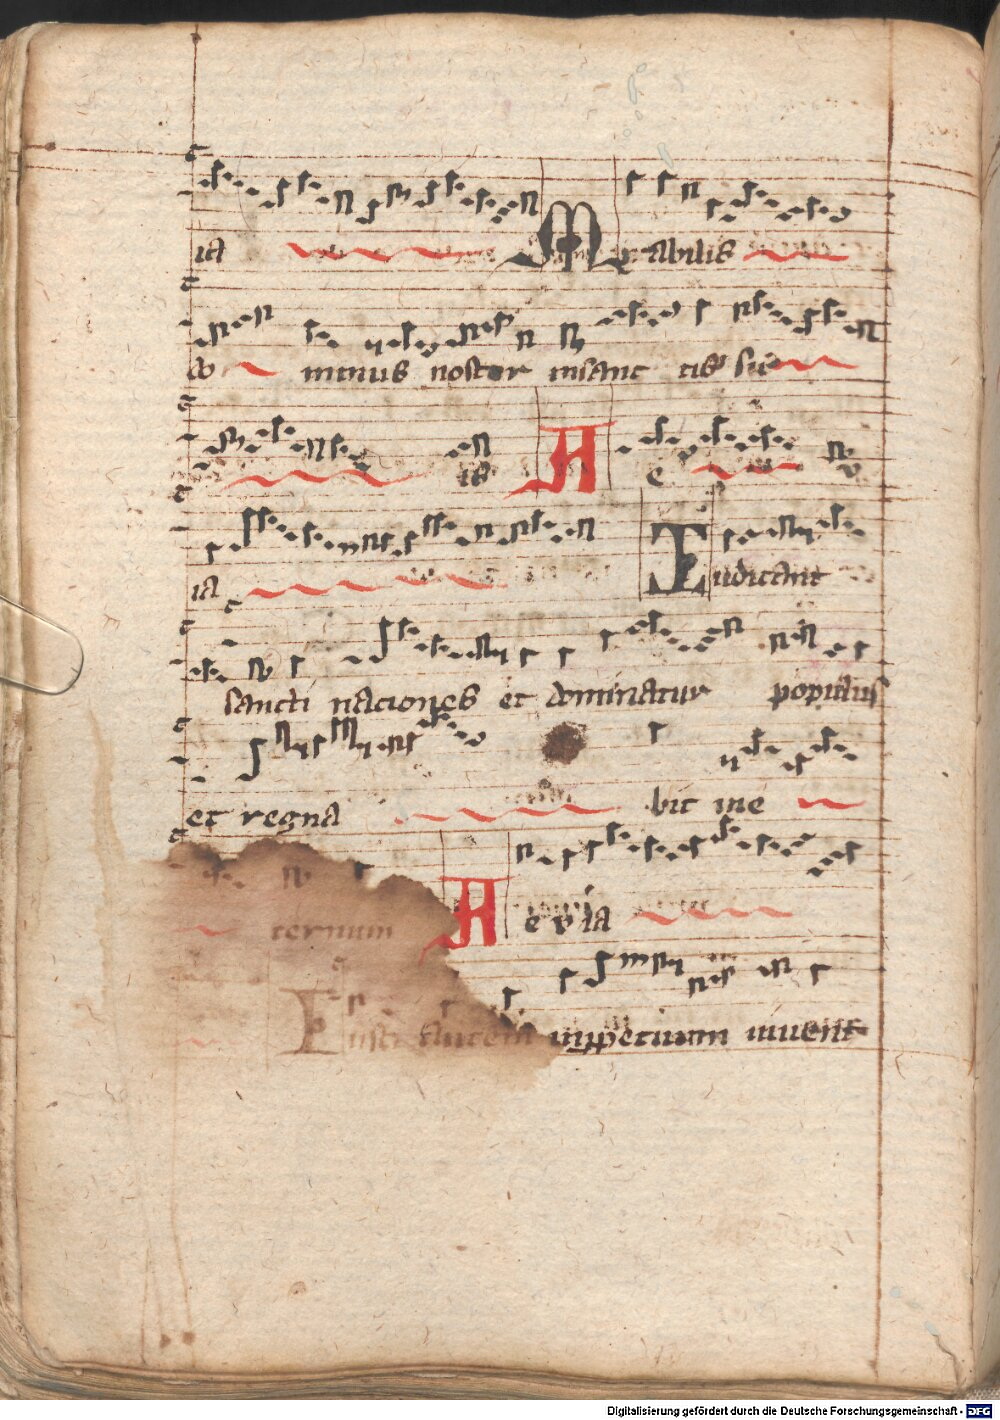 ia Mirabilis
do minus noster in sanc tis su
is A e v
ia Iudicant
sancti naciones et dominatur populus
et regna bit ine
ternum A e v ia
Iusti autem inppetuum uiuent
Digitalisierung gefördert durch die Deutsche Forschungsgemeinschaft - DFG